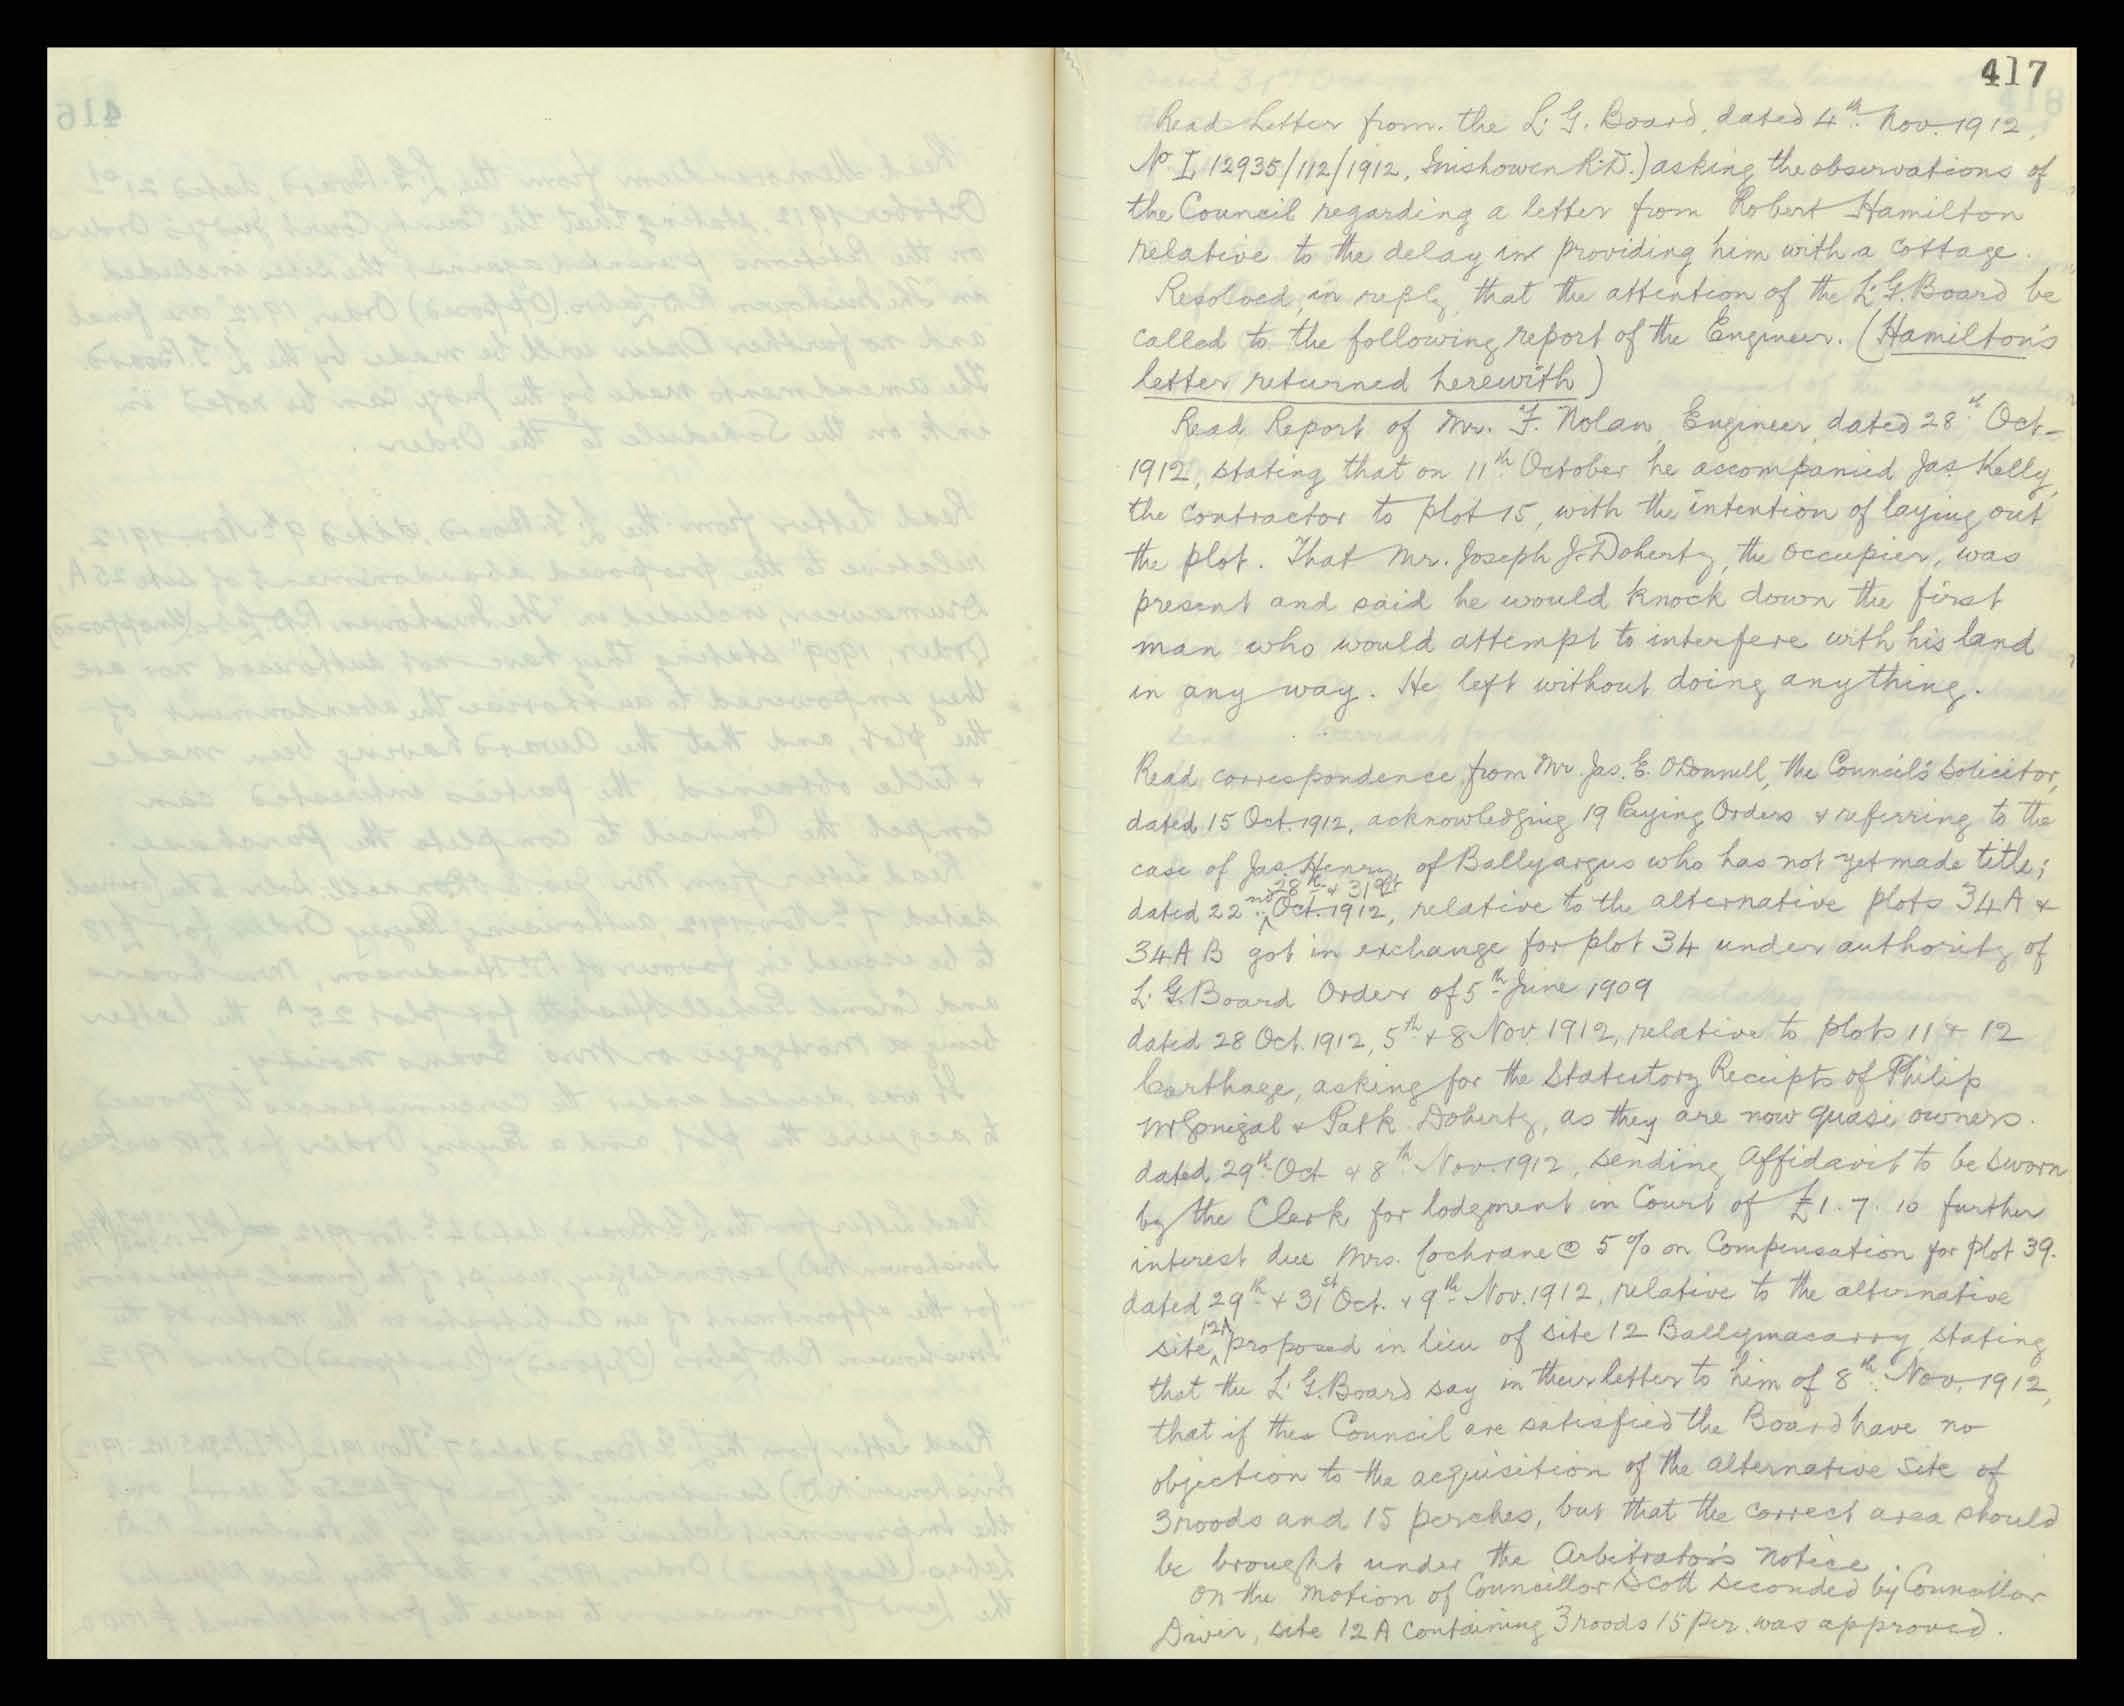 417
Read Letter from the L. G. Board, dated 4th Nov. 1912,
No. L 12935/112/1912, Inishowen R.D.) asking the observations of
the Council regarding a letter from Robert Hamilton
relative to the delay in providing him with a cottage.
Resolved, in reply, that the attention of the L. G. Board be
called to the following report of the Engineer. (Hamilton's
letter returned herewith)
Read Report of Mr. F. Nolan, Engineer, dated 28th Oct-
1912, stating that on 11th October he accompanied Jas. Kelly,
the contractor to plot 15, with the intention of laying out
the plot. That Mr. Joseph J. Doherty, the occupier, was
present and said he would knock down the first
man who would attempt to interfere with his land
in any way. He left without doing anything.
Read correspondence from Mr. Jas. E. O'Donnell, the Council's Solicitor,
dated 15 Oct. 1912, acknowledging 19 Paying Orders & referring to the
case of Jas. Henry, of Ballyargus who has not yet made title;
28th & 31st
dated 22nd Oct. 1912, relative to the alternative plots 34A &
34A B got in exchange for plot 34 under authority of
L. G. Board Order of 5th June 1909
dated 28 Oct. 1912, 5th & 8 Nov. 1912, relative to plots 11 & 12
Carthage, asking for the Statutory Receipts of Philip
McGonigal & Patk. Doherty, as they are now quasi owners.
dated 29th Oct & 8th Nov. 1912, sending Affidavit to be sworn
by the Clerk for lodgment in Court of £1. 7. 10 further
interest due Mrs. Cochrane @ 5% on Compensation for plot 39.
dated 29th & 31st Oct. & 9th Nov. 1912, relative to the alternative
site 12A proposed in lieu of site 12 Ballymacarry, stating
that the L. G. Board say in their letter to him of 8th Nov. 1912,
that if the Council are satisfied the Board have no
objection to the acquisition of the alternative site of
3 roods and 15 perches, but that the correct area should
be brought under the Arbitrator's notice
On the motion of Councillor Scott seconded by Councillor
Diver, site 12A containing 3 roods 15 per. was approved.